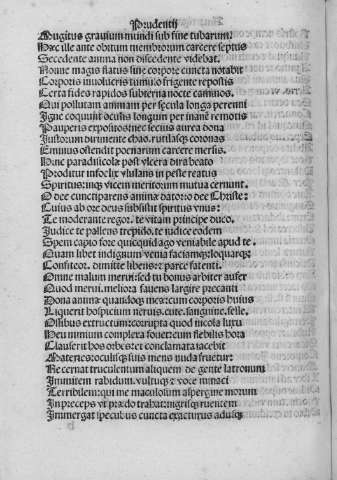 Prudentij
Mugitus grauium mundi sub fine tubarum:
Hæc ille ante obitum membrorum carcere septus
Secedente anima non discedente videbat.
Nonne magis flatus sine corpore cuncta notabit
Corporis inuolucris tumulo frigente repostis
Certa fides rapidos subterna nocte caminos.
Qui pollutam animam per secula longa perenni
Igne coquunt oculis longum per inane remotis
Pauperis expositos nec secius aurea dona
Iustorum dirimente chao. rutilasque coronas
Eminus ostendi poenarum carcere mersis.
Hinc paradisicolæ post vlcera dira beato
Proditur infoelix vlulans in peste reatus
Spiritus: inque vicem meritorum mutua cernunt.
O dee cunctiparens animæ dator: o dee Christe:
Cuius ab ore deus subsistit spiritus vnus:
Te moderante regor. te vitam principe duco.
Iudice te pallens trepido. te iudice eodem
Spem capio fore quicquid ago veniabile apud te.
Quam libet indignum venia faciamque loquarque
Confiteor. dimitte libens: parce fatenti.
Omne malum merui: sed tu bonus arbiter aufer
Quod merui. meliora fauens largire precanti
Dona animæ quandoque meæ: cum corporis huius
Liquerit hospicium neruis. cute. sanguine. felle.
Ossibus extructum: corrupta quod incola luxu
Heu nimium complexa fouet: cum flebilis hora
Clauserit hos orbes: et conclamata iacebit
Materies: oculisque suis mens nuda fruetur:
Ne cernat truculentum aliquem de gente latronum
Immitem rabidum. vultuque et voce minaci
Terribilem: qui me maculosum aspergine morum
In præceps vt prædo trahat: nigrisque ruentem
Immergat specubus cuncta exacturus adusque